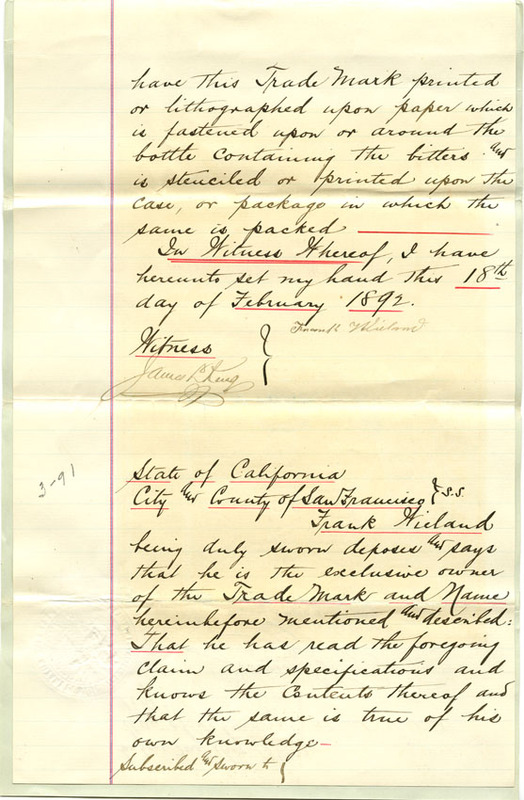 have this Trade Mark printed
or lithographed upon paper which
is fastened upon or around the
bottle containing the bitters and
is stenciled or printed upon the
case, or package in which the
same is packed
In Witness Whereof, I have
hereunto set my hand this 18th
day of February 1892.
Frank Wieland
Witness
James L. King
3-91
State of California
City and County of San Francisco } S.S.
Frank Wieland
being duly sworn deposes and says
that he is the exclusive owner
of the Trade Mark and Name
hereinbefore mentioned and described:
That he has read the foregoing
claim and specifications and
knows the Contents thereof and
that the same is true of his
own knowledge
Subscribed and sworn to }